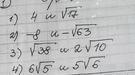 1) 4 и √17
2) -8 и -√63
3) √38 и 2√10
4) 6√5 и 5√6